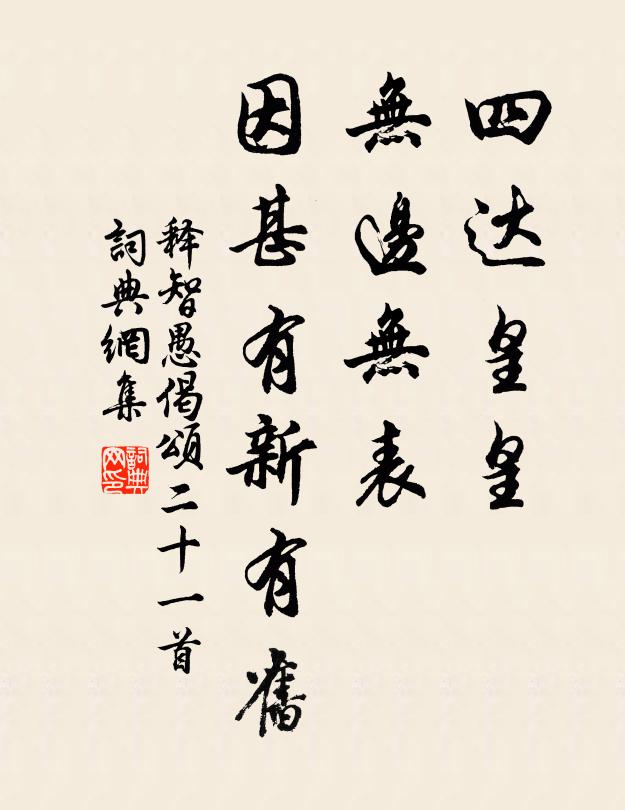 四达皇皇
無邊無表
因甚有新有舊
释智愚偈頌二十一首
詞典網集
詞典网印